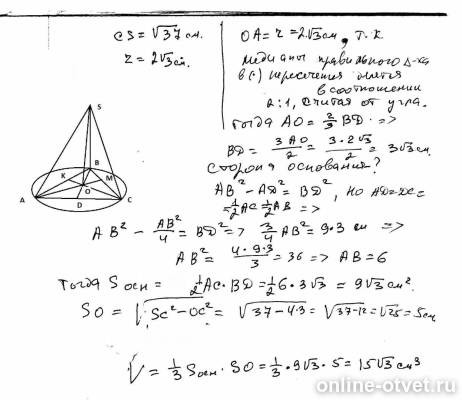 CS = √37 см.
r = 2√3 см.
OA = r = 2√3 см, т.к
медианы правильного Δ-ка
в (·) пересечения делятся
в соотношении
2:1, считая от угла.
тогда AO = 2/3 BD. =>
BD = 3AO/2 = 3·2√3/2 = 3√3 см.
сторона основания?
AB² - AD² = BD², но AD = DC =
= 1/2 AC = 1/2 AB =>
AB² - AB²/4 = BD² => 3/4 AB² = 9·3 см =>
AB² = 4·9·3/3 = 36 => AB = 6
Тогда Sосн = 1/2 AC·BD = 1/2 6·3√3 = 9√3 см².
SO = √SC² - OC² = √37-4·3 = √37-12 = √25 = 5см
V = 1/3 Sосн · SO = 1/3 · 9√3 · 5 = 15√3 см³
S
K
B
M
O
A
D
C
online-otvet.ru